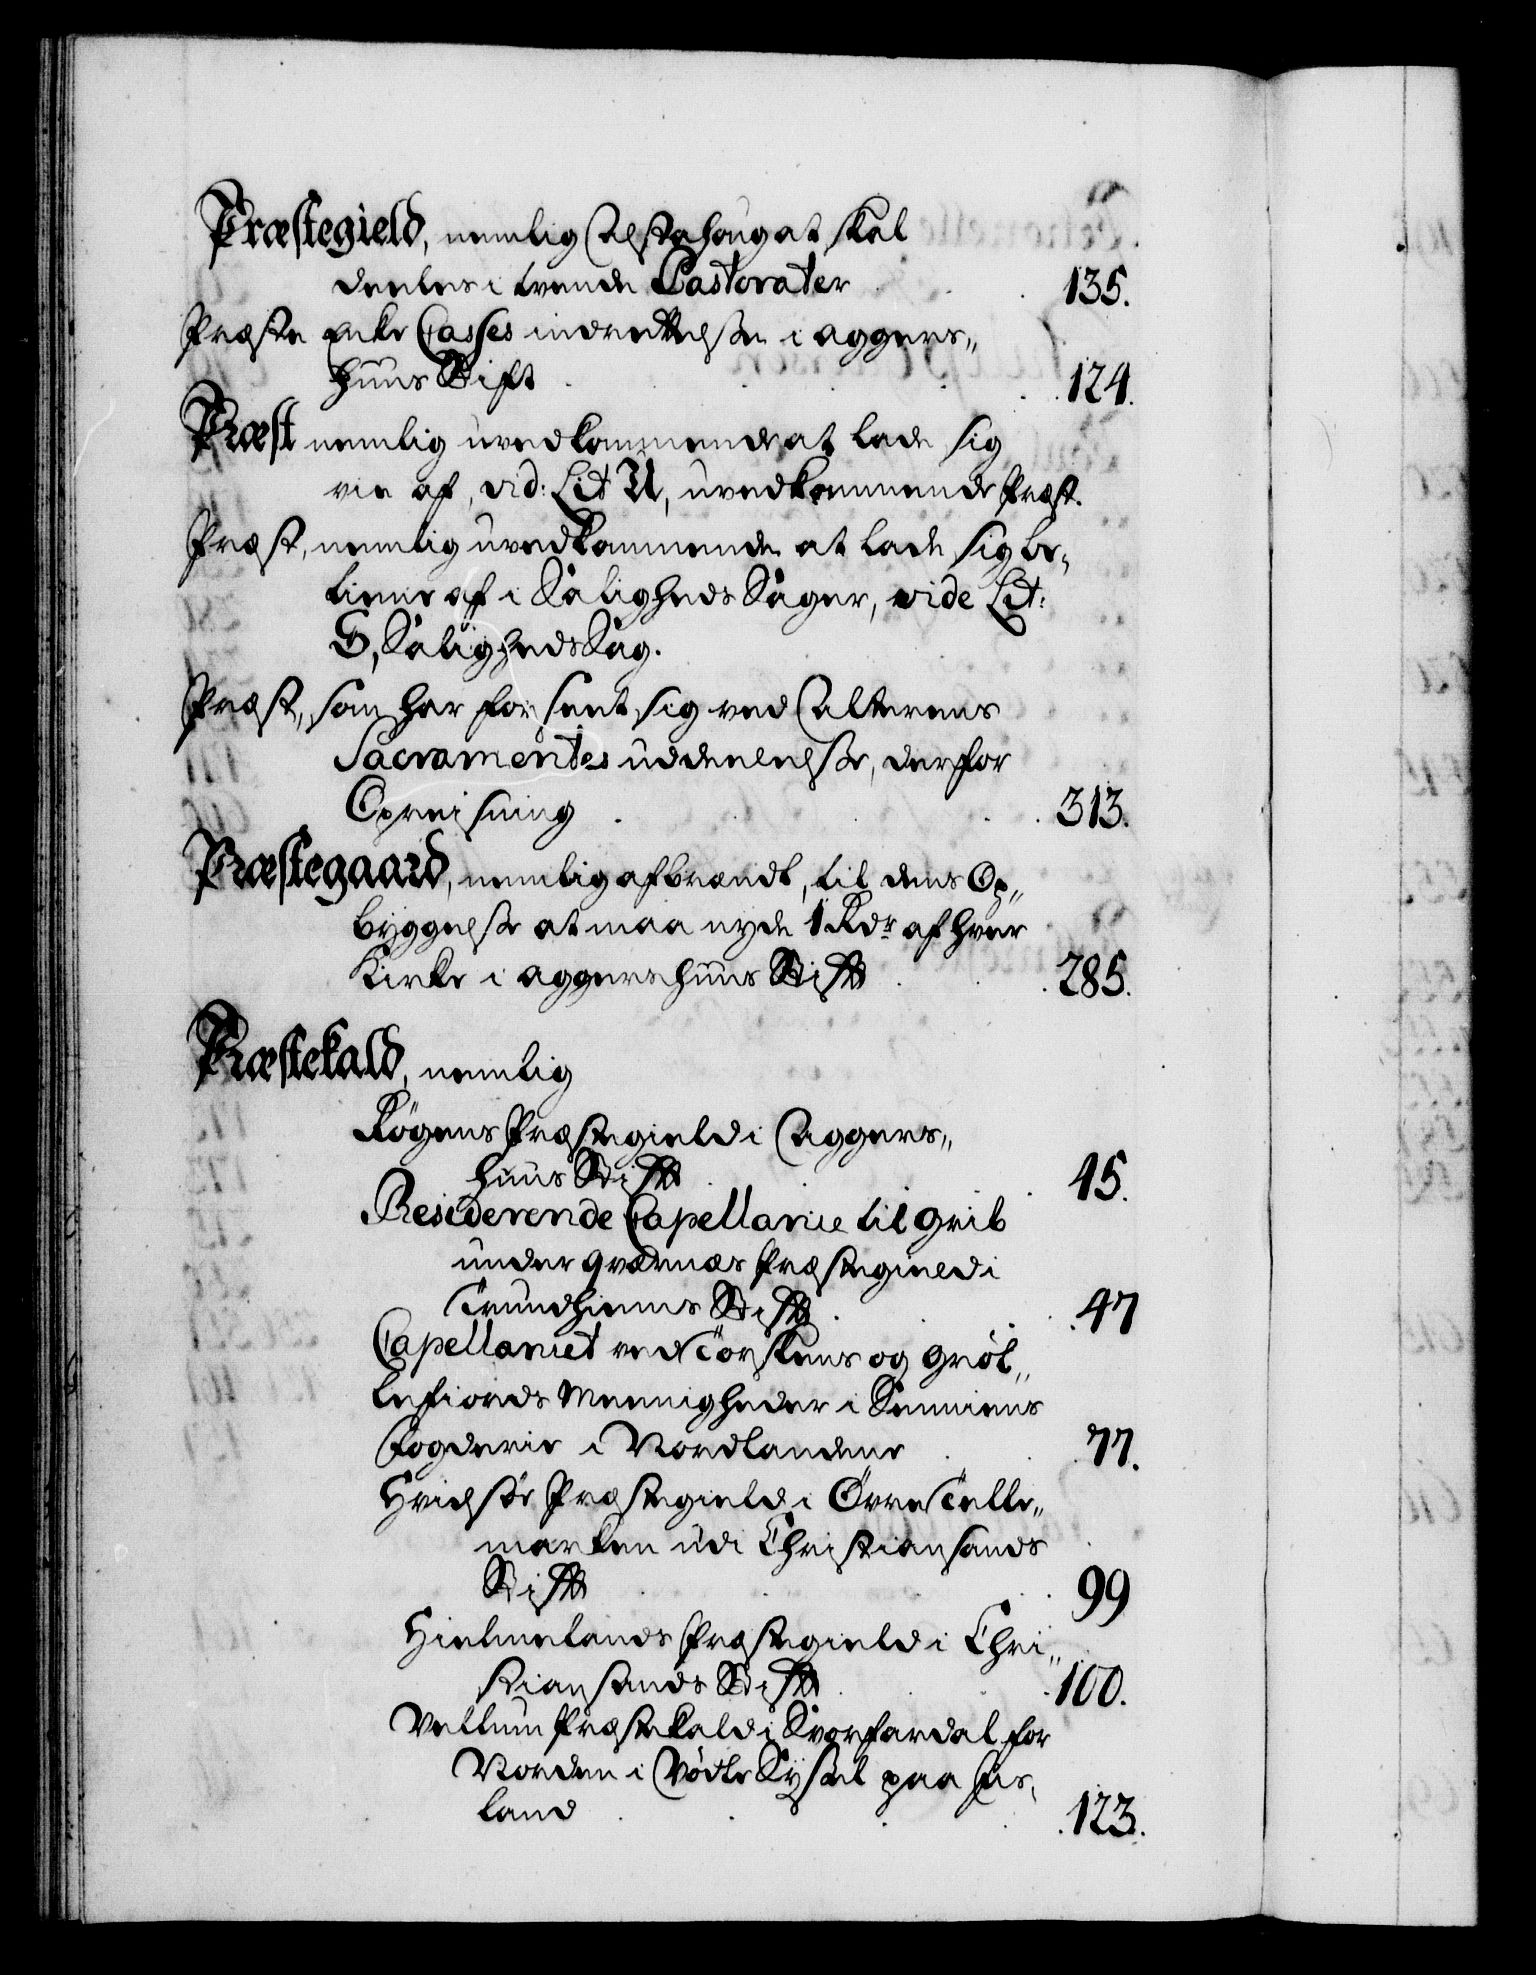 Præstegield, nemlig Alstahoug at skal
deeles i tvende Pastorater 135.
Præste Enke Casses indrettelse i Agger¬
huus Stift 124.
Præst nemlig uvedkommende at lade sig
vie af, vid: Lit U, uvedkommende Præst.
Præst, nemlig uvedkommende at lade sig be¬
tiene af i Saligheds Sager, vide Lit:
S, Saligheds Sag.
Præst, som har forseet sig ved Alterens
Sacramentes uddeelelse, derfor
Opreisning 313.
Præstegaard, nemlig afbrændt, til dens Op¬
byggelse at maa nyde 1 Rdr af hver
Kirke i Aggershuus Stift 285.
Præstekald, nemlig
Køgens Præstegield i Aggers¬
huus Stift 45.
Residerende Capellanie til Grib
under Qværnæs Præstegield i
Trundhiems Stift 47
Capellaniet ved Torskens og Gröl¬
lefiords Meenigheder i Senniens
Fogderie i Nordlandene 77.
Hvidsöe Præstegield i Øvre Telle¬
marken udi Christiansands
Stift 99
Hielmelands Præstegield i Chri¬
stiansands Stift 100.
Vellum Præstekald i Svarfardal for
Norden i Vödle Syssel paa Iis¬
land 123.